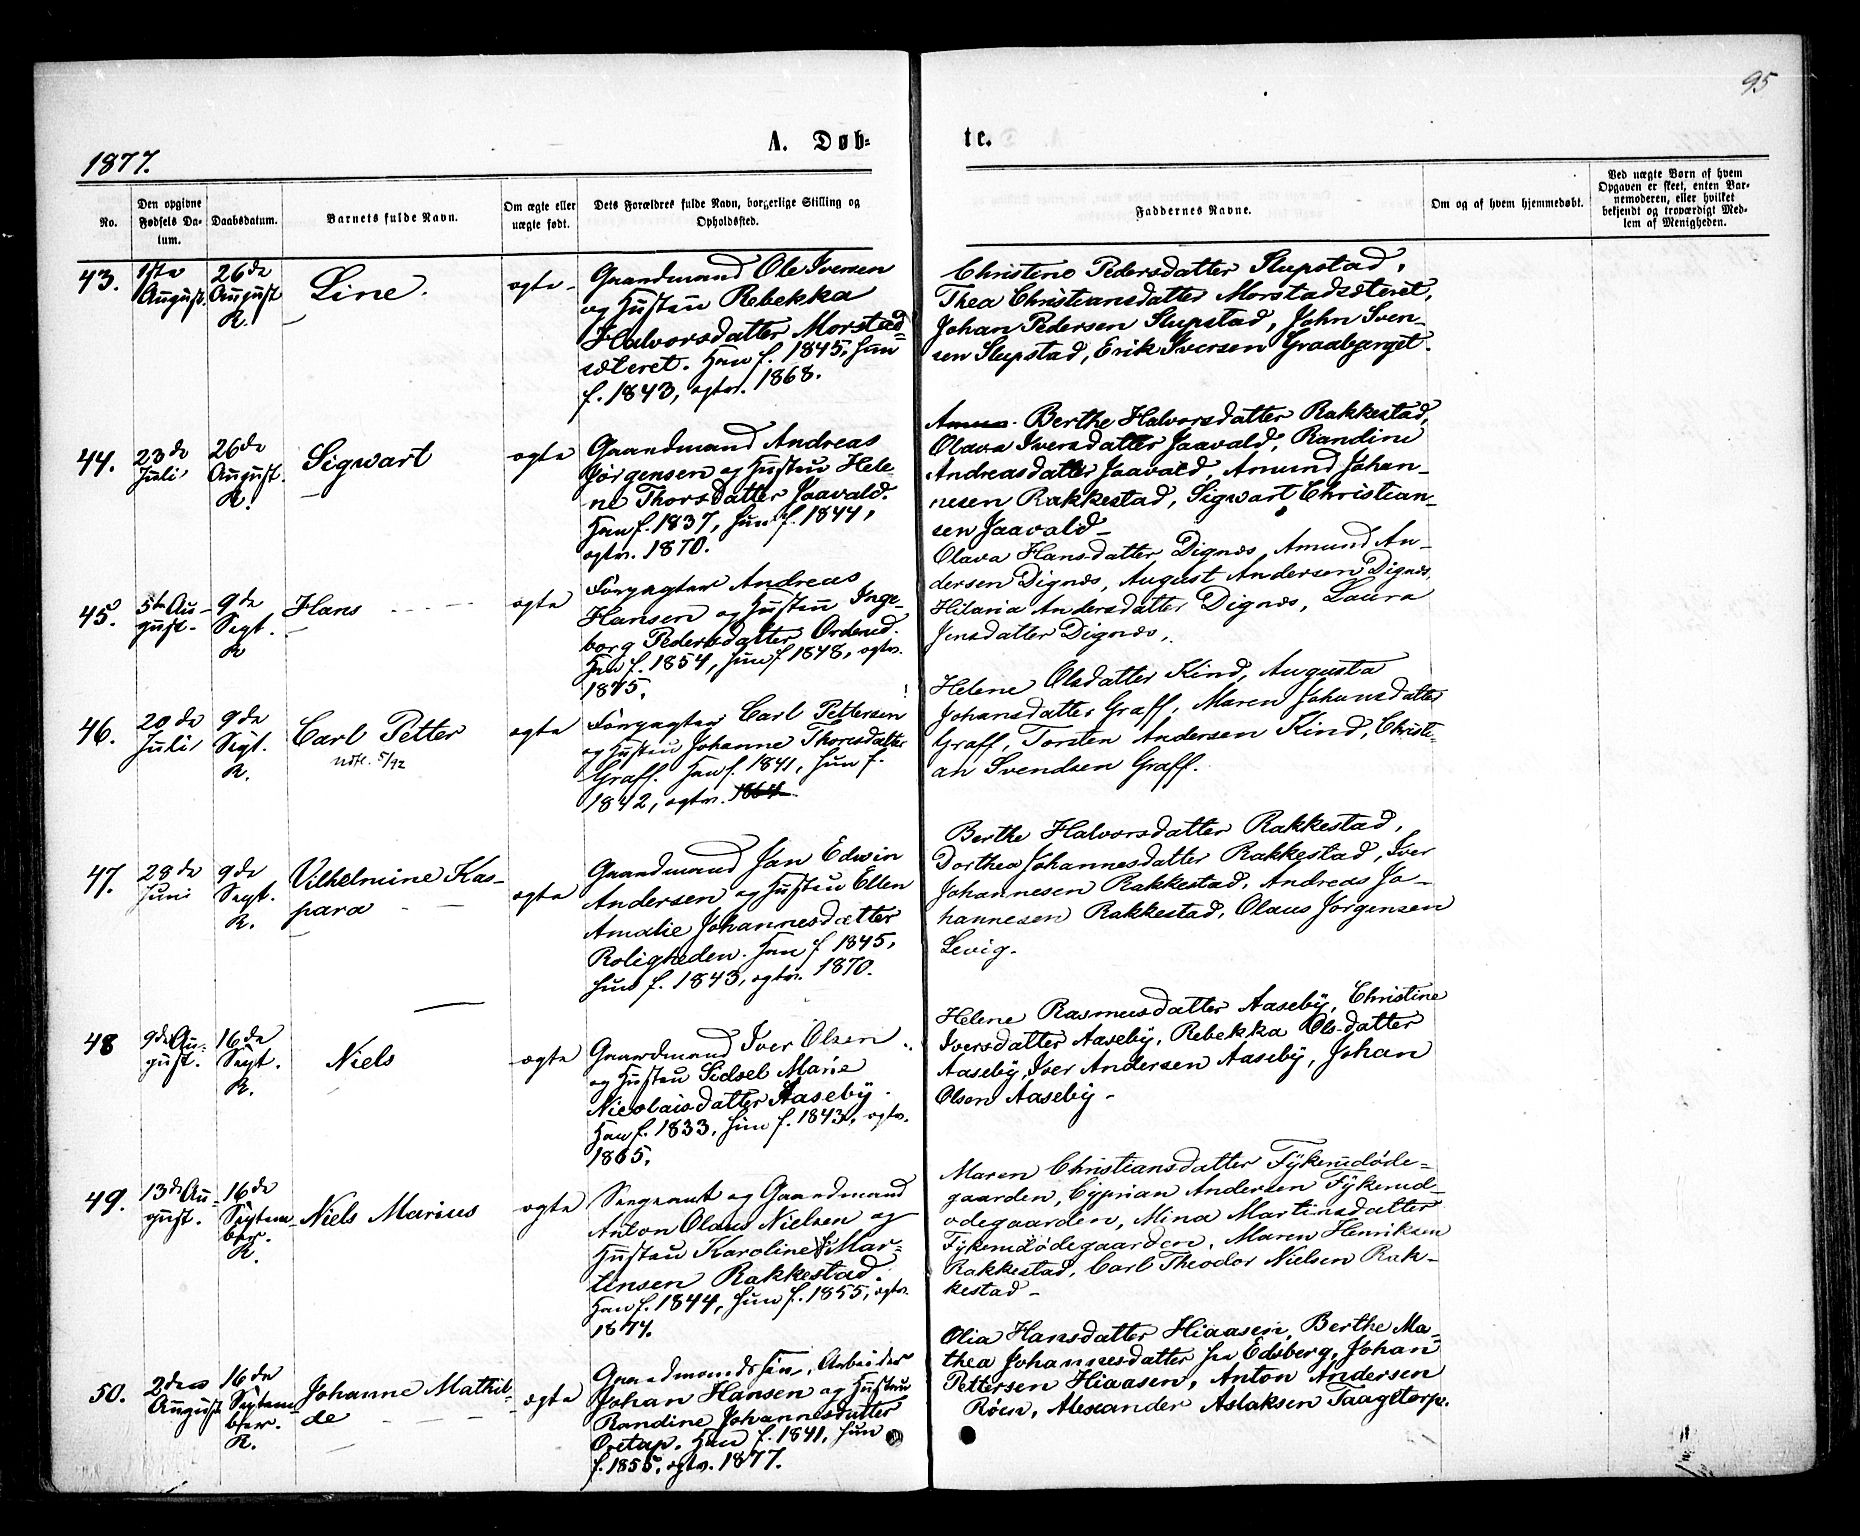 95
1877.
A. Døb-
te.
No.
Den opgivne Fødsels Da-
tum.
Daabsdatum.
Barnets fulde Navn.
Om ægte eller
uægte født.
Dets Forældres fulde Navn, borgerlige Stilling og
Opholdssted.
Faddernes Navne.
Om og af hvem hjemmedøbt.
Ved uægte Børn af hvem
Opgaven er skeet, enten Bar-
nemoderen, eller hvilket
bekjendt og troværdigt Med-
lem af Menigheden.
43.
1ste
August.
26de
August
R.
Line.
ægte
Gaardmand Ole Iversen
og Hustru Rebekka
Halvorsdatter Morstad-
sæteret. Han f. 1845, hun
f. 1843, ægtev. 1868.
Christine Pedersdatter Slupstad,
Thea Christiansdatter Morstadsæteret,
Johan Pedersen Slupstad, John Sven-
sen Slupstad, Erik Iversen Graabjerget.
44.
23de
Juli
26de
August.
R.
Sigwart
ægte
Gaardmand Andreas
Jørgensen og Hustru Hele-
ne Thorsdatter Jaavald.
Han f. 1837, hun f. 1844,
ægtv. 1870.
Berthe Halvorsdatter Rakkestad,
Olava Iversdatter Jaavald, Randine
Andreasdatter Jaavald, Amund Johan-
nesen Rakkestad, Sigwart Christian-
sen Jaavald
45.
5te Au-
gust.
9de
Sept.
R
Hans
ægte
Forpagter Andreas
Hansen og Hustru Inge-
borg Pedersdatter
Han f. 1854, hun f. 1848, ægtv.
1875.
Olava Hansdatter Dignæs, Amund An-
dersen Dignæs, August Andersen Dignæs,
Hilaria Andersdatter Dignæs, Laura
Jensdatter Dignæs,
46.
20de
Juli
9de
Sept.
R.
Carl Petter
udfl. 5/92
ægte
Forpagter Carl Pettersen
og Hustru Johanne Thoresdatter
Graff. Han f. 1841, hun f.
1842, ægtv. 1864
Helene Olsdatter Kind, Augusta
Johansdatter Graff, Maren Johansdatter
Graff, Torsten Andersen Kind, Christi-
an Svendsen Graff.
47.
28de
Juni
9de
Sept.
R.
Vilhelmine Kas-
para
ægte
Gaardmand Jan Edwin
Andersen og Hustru Ellen
Amalie Johannesdatter
Roligheden. Han f 1845,
hun f. 1843, ægtv. 1870.
Berthe Halvorsdatter Rakkestad,
Dorthea Johannesdatter Rakkestad, Iver
Johannesen Rakkestad, Andreas Jo-
hannesen Rakkestad, Olaus Jørgensen
Levig.
48
9de Au-
gust.
16de
Sept.
R.
Niels
ægte
Gaardmand Iver Olsen
og Hustru Sidsel Marie
Nicolaisdatter Aaseby.
Han f. 1833, hun f. 1843, ægtv.
1865.
Helene Rasmusdatter Aaseby, Christine
Iversdatter Aaseby, Rebekka Olsdatter
Aaseby, Iver Andersen Aaseby, Johan
Olsen Aaseby
49.
13de Au-
gust.
16de
Septem-
ber.
R.
Niels Marius
ægte
Sergeant og Gaardmand
Anton Olaus Nielsen og
Hustru Karoline Mar-
tinsen Rakkestad.
Han f. 1844, hun f. 1855, ægtv.
1874.
Maren Christiansdatter Fykerudøde-
gaarden, Cyprian Andersen Fykerud-
ødegaarden, Mina Martinsdatter
Fykerudødegaarden, Maren Henriksen
Rakkestad, Carl Theodor Nielsen Rak-
kestad
50.
2den
August
16de
Septem-
ber.
R.
Johanne Mathil-
de
ægte
Gaardmandssøn, Arbeider
Johan Hansen og Hustru
Randine Johannesdatter
Oretap. Han f. 1841, hun
f. 1855, ægtv. 1877.
Olia Hansdatter Hiaasen, Berthe Ma-
thea Johannesdatter fra Edsberg, Johan
Pettersen Hiaasen, Anton Andersen
Røen, Alexander Aslaksen Taagetorp.